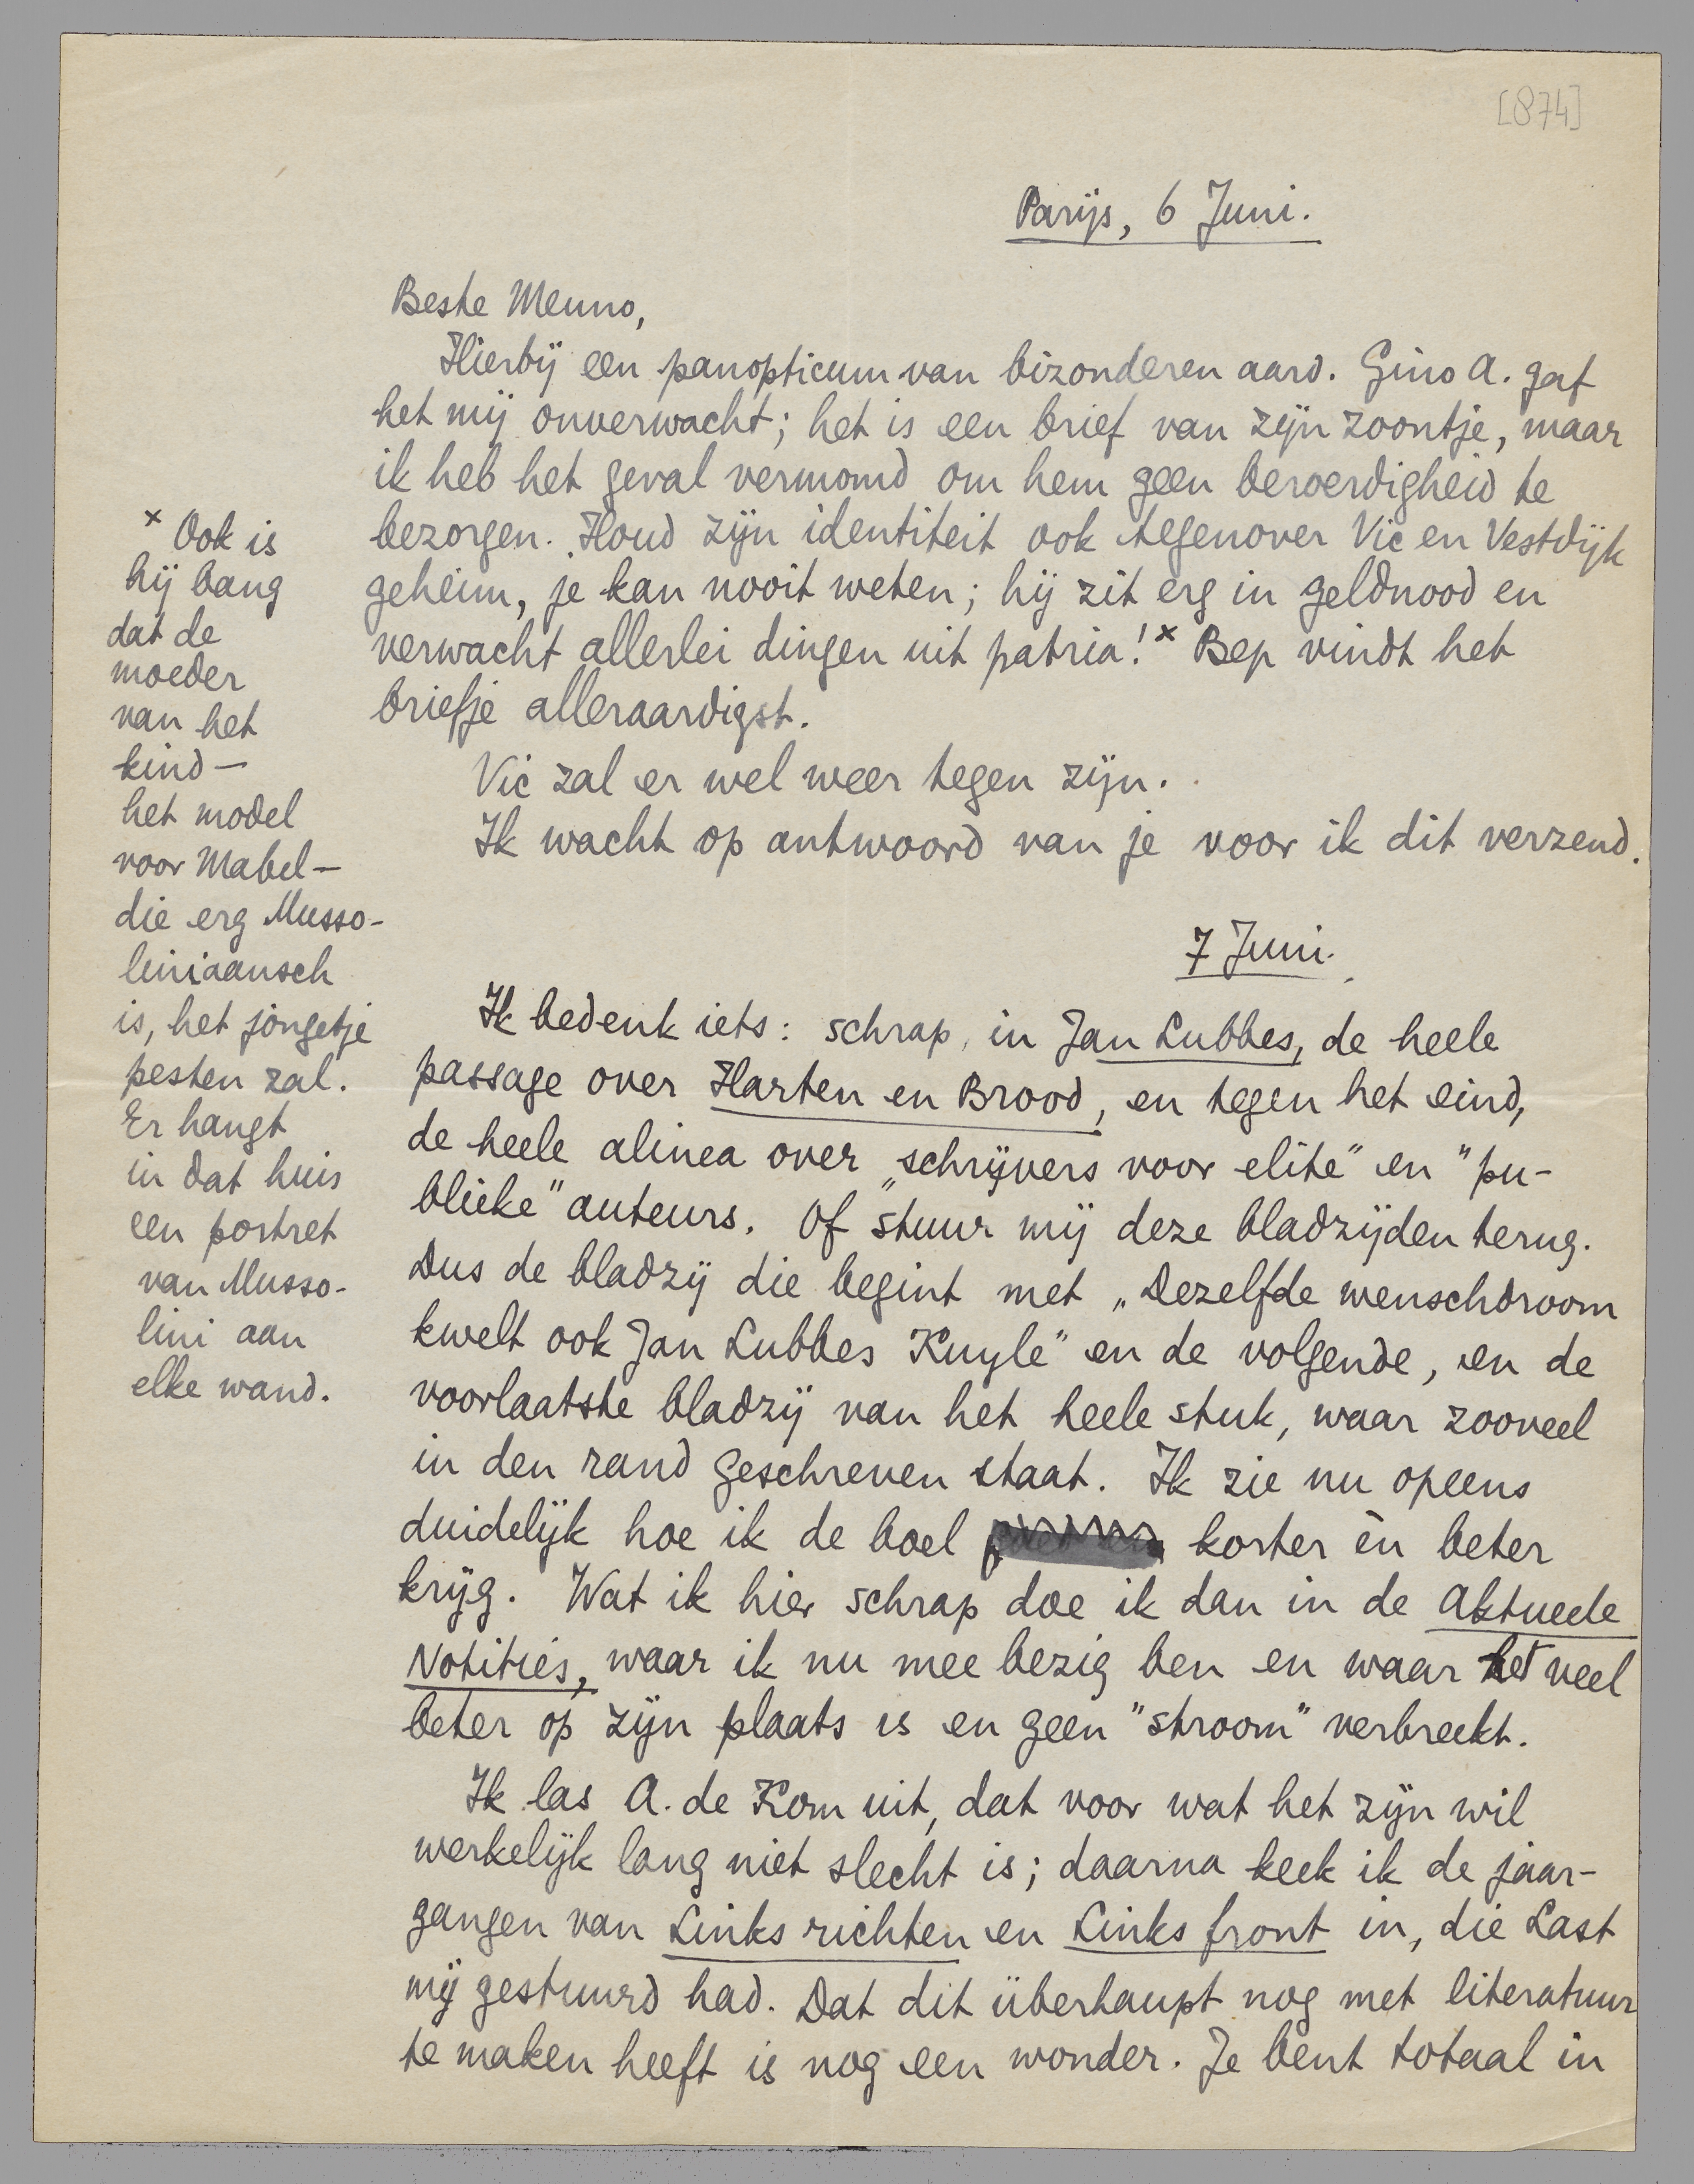 [874]
Parijs, 6 Juni.
Beste Menno,
Hierbij een panopticum van bizonderen aard. Gino A. gaf
het mij onverwacht; het is een brief van zijn zoontje, maar
ik heb het geval vermomd om hem geen beroerdigheid te
bezorgen. Houd zijn identiteit ook tegenover Vic en Vestdijk
geheim, je kan nooit weten; hij zit erg in geldnood en
verwacht allerlei dingen uit patria!x Bep vindt het
briefje alleraardigst.
Vic zal er wel weer tegen zijn.
Ik wacht op antwoord van je voor ik dit verzend.
x Ook is
hij bang
dat de
moeder
van het
kind—
het model
voor Mabel—
die erg Musso-
liniaansch
is, het jongetje
pesten zal.
Er hangt
in dat huis
een portret
van Musso-
lini aan
elke wand.
7 Juni.
Ik bedenk iets: schrap, in Jan Lubbes, de heele
passage over Harten en Brood, en tegen het eind,
de heele alinea over „schrijvers voor elite" en "pu-
blieke" auteurs. Of stuur mij deze bladzijden terug.
Dus de bladzij die begint met „Dezelfde wenschdroom
kwelt ook Jan Lubbes Kuyle" en de volgende, en de
voorlaatste bladzij van het heele stuk, waar zooveel
in den rand geschreven staat. Ik zie nu opeens
duidelijk hoe ik de boel korter èn beter
krijg. Wat ik hier schrap doe ik dan in de Aktueele
Notities, waar ik nu mee bezig ben en waar het veel
beter op zijn plaats is en geen "stroom" verbreekt.
Ik las A. de Kom uit, dat voor wat het zijn wil
werkelijk lang niet slecht is; daarna keek ik de jaar-
gangen van Links richten en Links front in, die Last
mij gestuurd had. Dat dit überhaupt nog met literatuur
te maken heeft is nog een wonder. Je bent totaal in